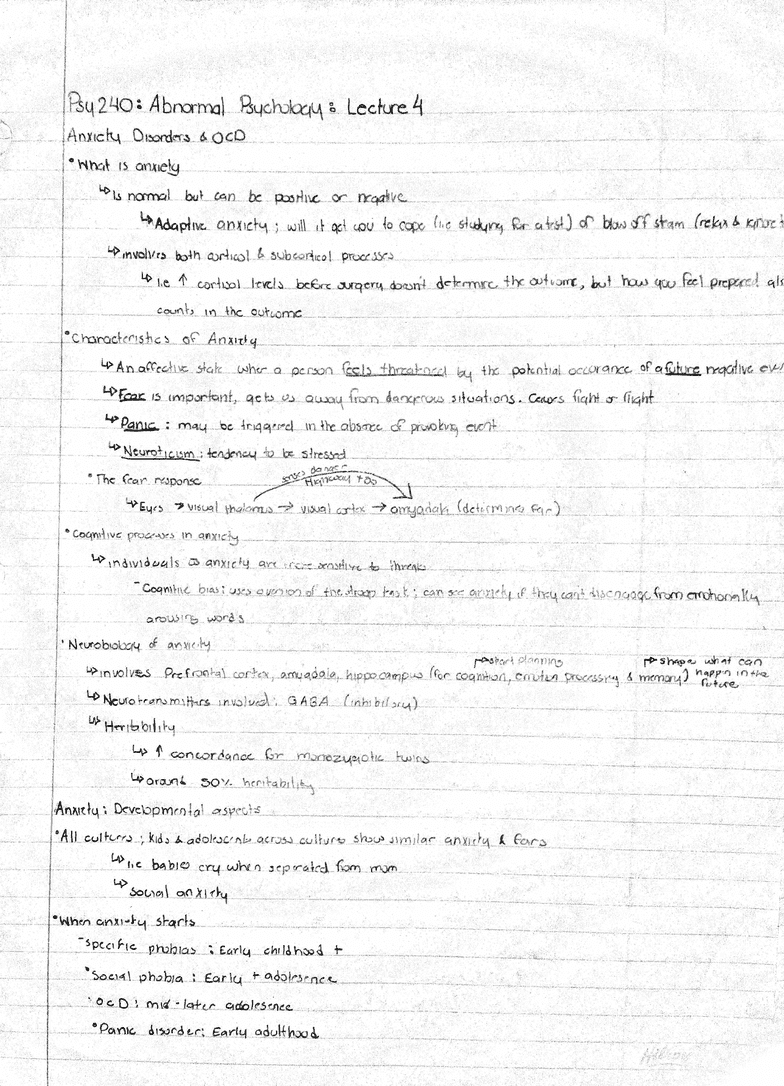 Psy 240: Abnormal Psychology: Lecture 4
Anxiety Disorders & OCD
• What is anxiety
↳ Is normal but can be positive or negative
↳ Adaptive anxiety; will it get you to cope (i.e studying for a test) or blow off stam (relax & ignore
↳ involves both cortical & subcortical processes
↳ i.e ↑ cortisol levels before surgery doesn't determine the outcome, but how you feel prepared als
counts in the outcome
• Characteristics of Anxiety
↳ An affective state when a person feels threatened by the potential occurance of a future negative eve
↳ Fear is important, gets us away from dangerous situations. Causes fight or flight
↳ Panic: may be triggered in the absence of provoking event
↳ Neuroticism: tendency to be stressed
senses danger
• The fear response Highway too
↳ Eyes → visual thalamus → visual cortex → amygdala (determines fear)
• Cognitive processes in anxiety
↳ individuals w anxiety are more sensitive to threats
- Cognitive bias: uses a version of the stroop task; can see anxiety if they can't disengage from emotionally
arousing words
• Neurobiology of anxiety
↱ start planning ↱ shape what can
↳ involves Prefrontal cortex, amygdala, hippocampus (for cognition, emotion processing & memory) happn in the
future
↳ Neurotransmitters involved: GABA (inhibitory)
↳ Heritability
↳ ↑ concordance for monozygotic twins
↳ around 50% heritability
Anxiety: Developmental aspects
• All cultures; kids & adolescents across cultures show similar anxiety & fears
↳ i.e babies cry when seperated from mom
↳ Social anxiety
• When anxiety starts
- specific phobias: Early childhood +
• Social phobia: Early + adolesence
• OCD: mid-later adolesence
• Panic disorder: Early adulthood